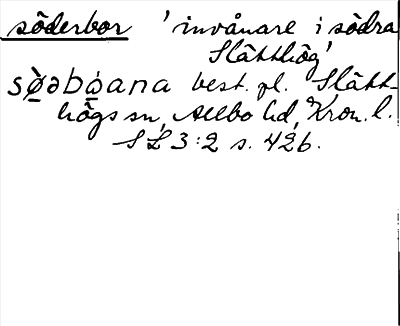 söderbor 'invånare i södra
Slätthög'
sø̀əbo̤ana best. pl. Slätt-
högs sn, Allbo hd, Kron. l.
SL 3:2 s. 426.